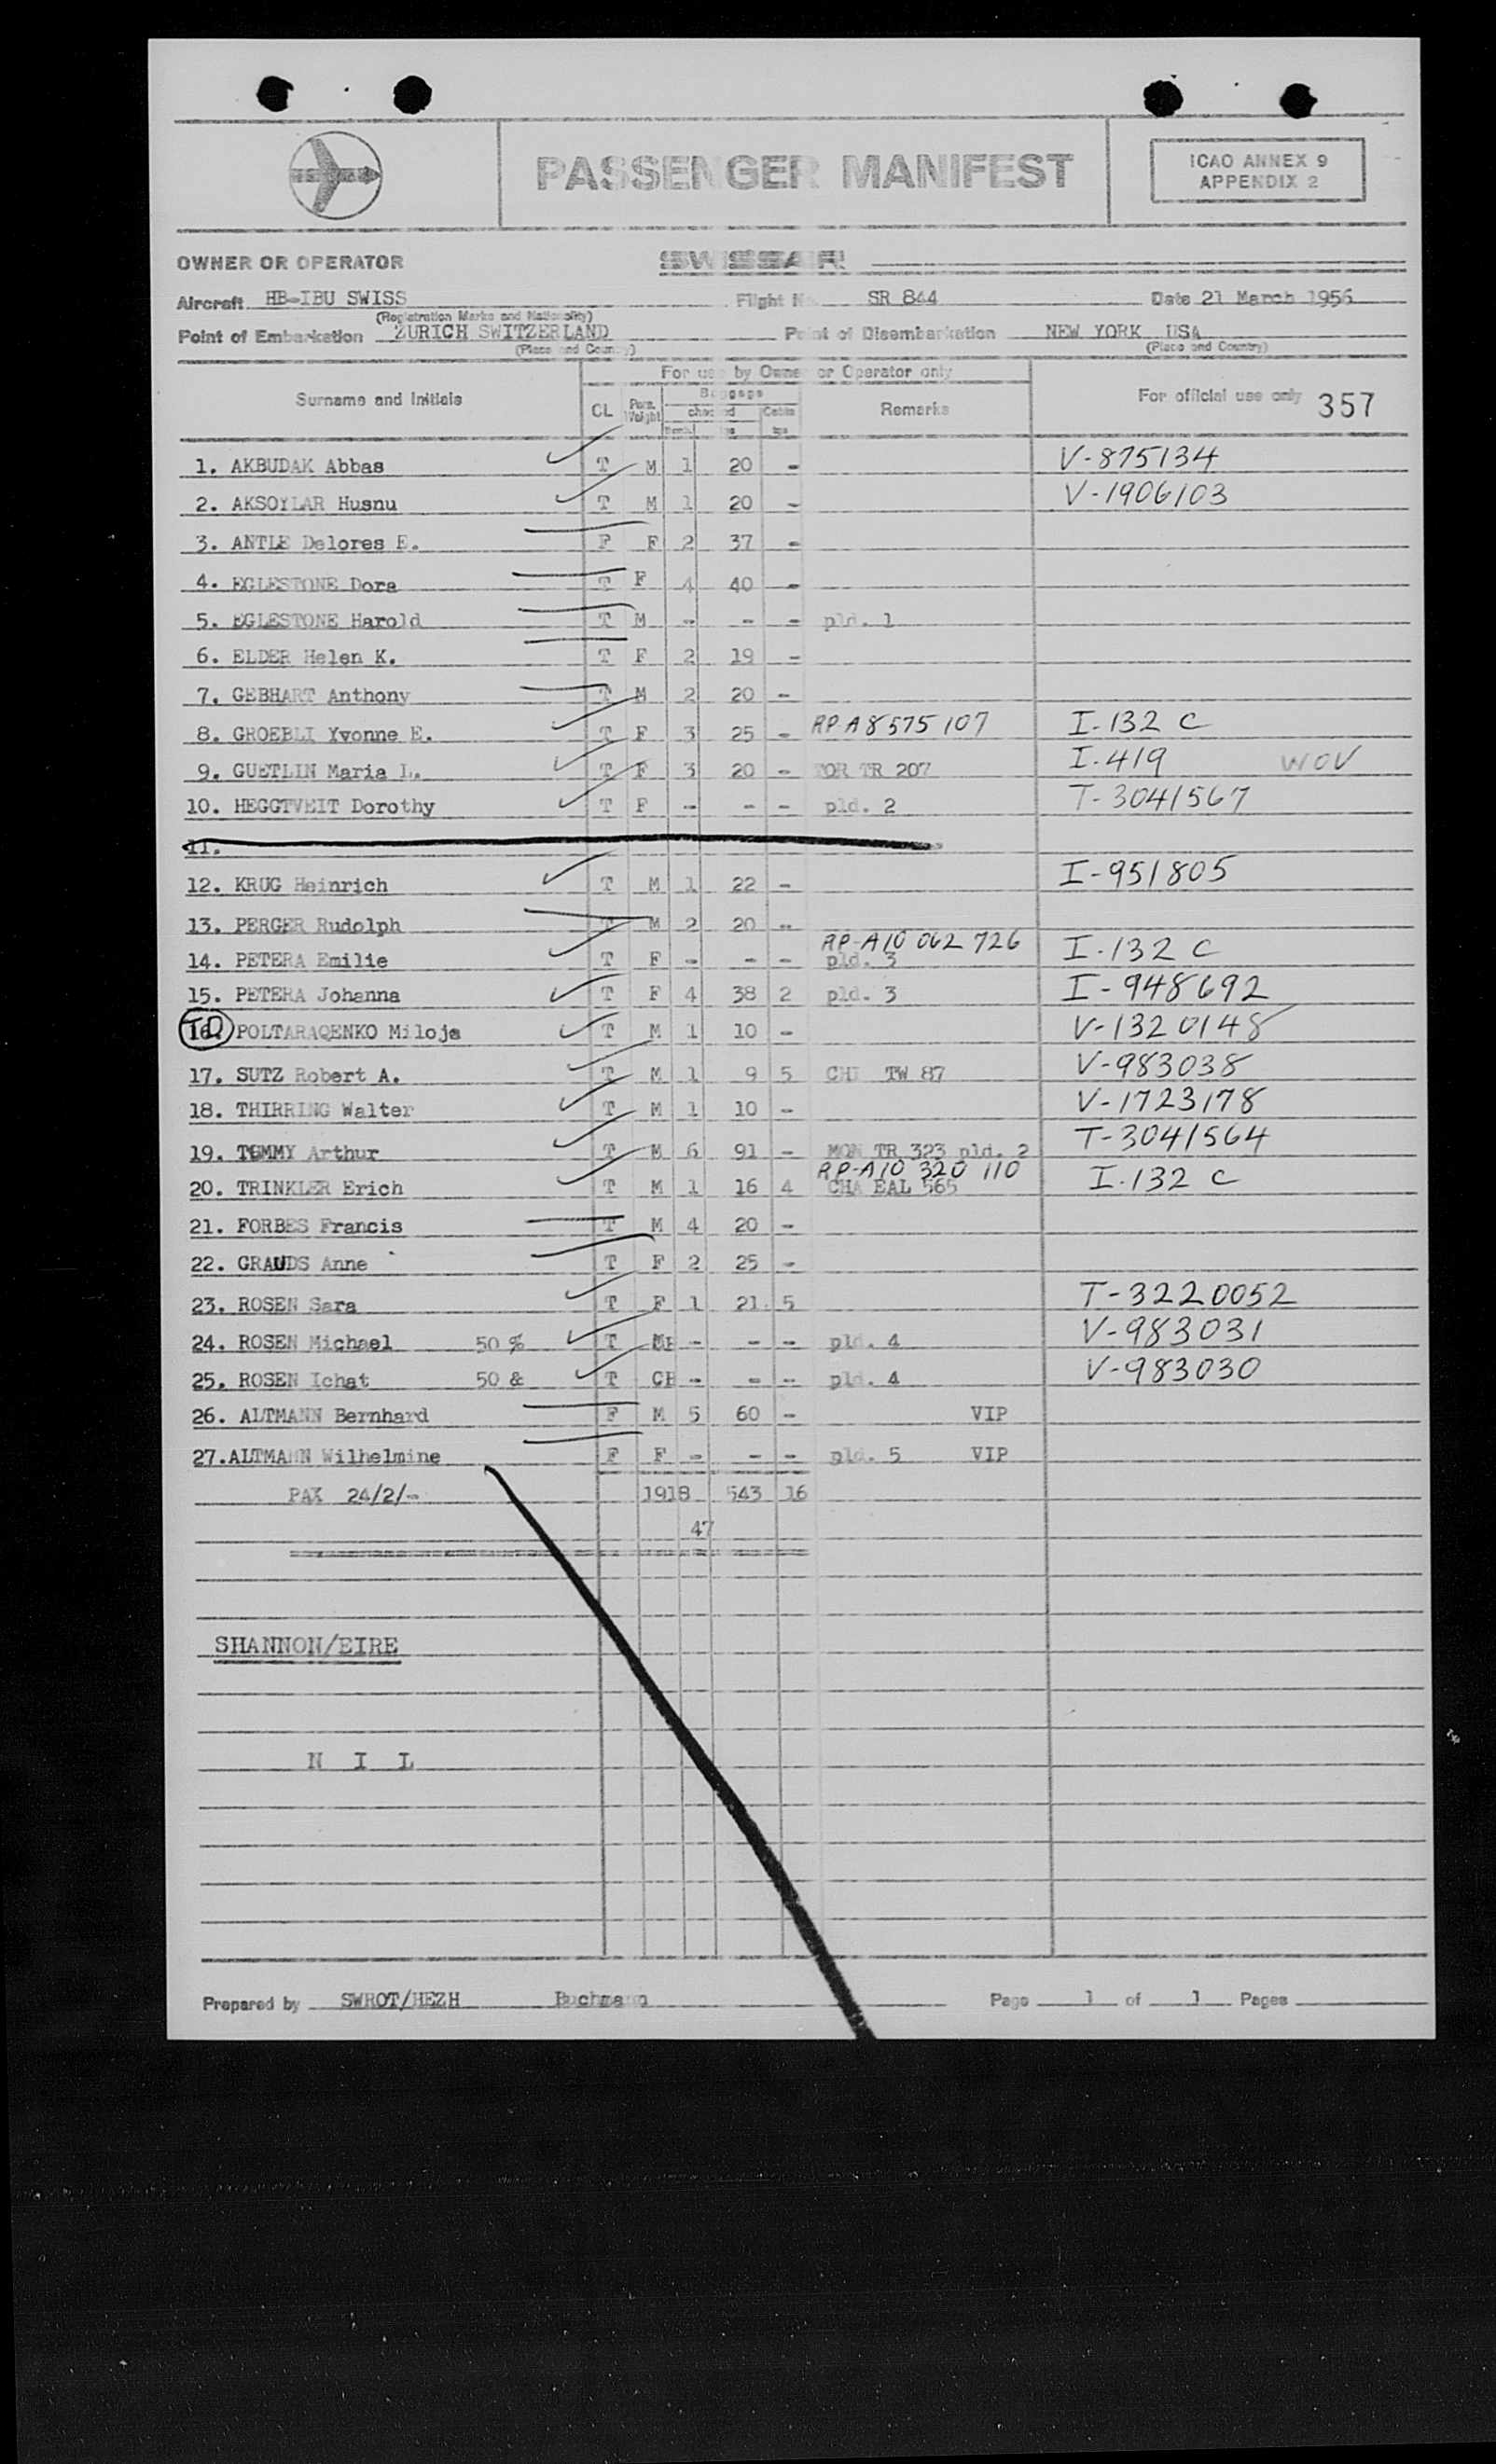 PASSENGER MANIFEST
ICAO ANNEX 9
APPENDIX 2
OWNER OR OPERATOR SWISSAIR
Aircraft HB-IBU SWISS Flight No. SR 844 Date 21 March 1956
(Registration Marks and Nationality)
Point of Embarkation ZURICH SWITZERLAND Point of Disembarkation NEW YORK USA
(Place and Country) (Place and Country)
For use by Owner or Operator only
Surname and Initials CL Pers. Weight Baggage checked Cabin Remarks For official use only 357
1. AKBUDAK Abbas T M 1 20 - V-875134
2. AKSOYLAR Husnu T M 1 20 - V-1906103
3. ANTLE Delores E. F F 2 37 -
4. EGLESTONE Dora T F 4 40 -
5. EGLESTONE Harold T M - - - pld. 1
6. ELDER Helen K. T F 2 19 -
7. GEBHART Anthony T M 2 20 -
8. GROEBLI Yvonne E. T F 3 25 - RP A8575107 I-132 C
9. GUETLIN Maria L. T F 3 20 - TOR TR 207 I-419 WOV
10. HEGGTVEIT Dorothy T F - - - pld. 2 T-3041567
11.
12. KRUG Heinrich T M 1 22 - I-951805
13. PERGER Rudolph T M 2 20 -
14. PETERA Emilie T F - - - RP-A10 062 726 pld. 3 I-132 C
15. PETERA Johanna T F 4 38 2 pld. 3 I-948692
16. POLTARAQENKO Miloja T M 1 10 - V-1320148
17. SUTZ Robert A. T M 1 9 5 CHI TW 87 V-983038
18. THIRRING Walter T M 1 10 - V-1723178
19. TOMMY Arthur T M 6 91 - MON TR 323 pld. 2 T-3041564
20. TRINKLER Erich T M 1 16 4 RP-A10 320 110 CHA EAL 565 I-132 C
21. FORBES Francis T M 4 20 -
22. GRAUDS Anne T F 2 25 -
23. ROSEN Sara T F 1 21 5 T-3220052
24. ROSEN Michael 50 % T - - - pld. 4 V-983031
25. ROSEN Ichat 50 & T CH - - - pld. 4 V-983030
26. ALTMANN Bernhard F M 5 60 - VIP
27. ALTMANN Wilhelmine F F - - - pld. 5 VIP
PAX 24/2/- 1918 543 16
47
SHANNON/EIRE
N I L
Prepared by SWROT/HEZH Buchmann Page 1 of 1 Pages